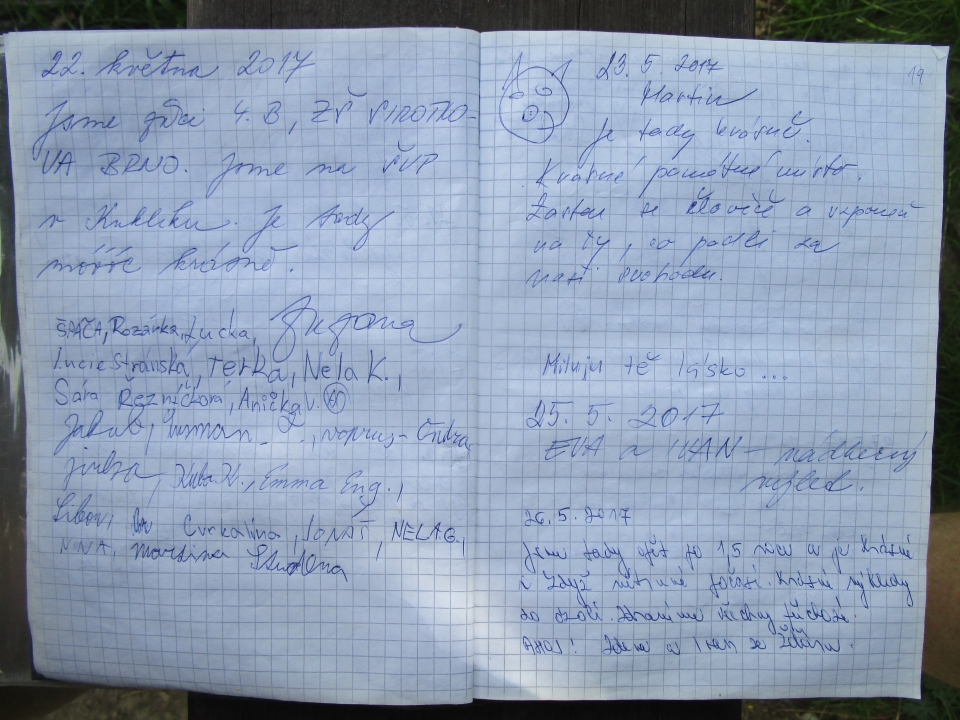 22. května 2017
Jsme žáci 4. B, ZŠ SIROTKO-
VA BRNO. Jsme na ŠVP
v Kuklíku. Je tady
móóóc krásně.
ŠPÁČA, Rozárka, Lucka, Zuzana
Lucie Stránská, Terka, Nela K.,
Sára Řezníčková, Anička V.
Jakub, Ondra
Kuba K., Emma Eng.,
Cvrkalína, JONÁŠ, NELA G.,
NINA, Martina
19
23. 5. 2017
Martin
Je tady krásně.
Krásné památné místo.
Zastav se člověče a vzpomeň
na ty, co padli za
naši svobodu.
Miluju tě lásko ...
25. 5. 2017
EVA a IVAN – nádherný
výhled.
26. 5. 2017
Jsme tady opět po 1,5 roce a je krásně
i když počasí. Krásné výhledy
do okolí. Zdravíme všechny
AHOJ! Zdena a Ivan ze Žďáru.